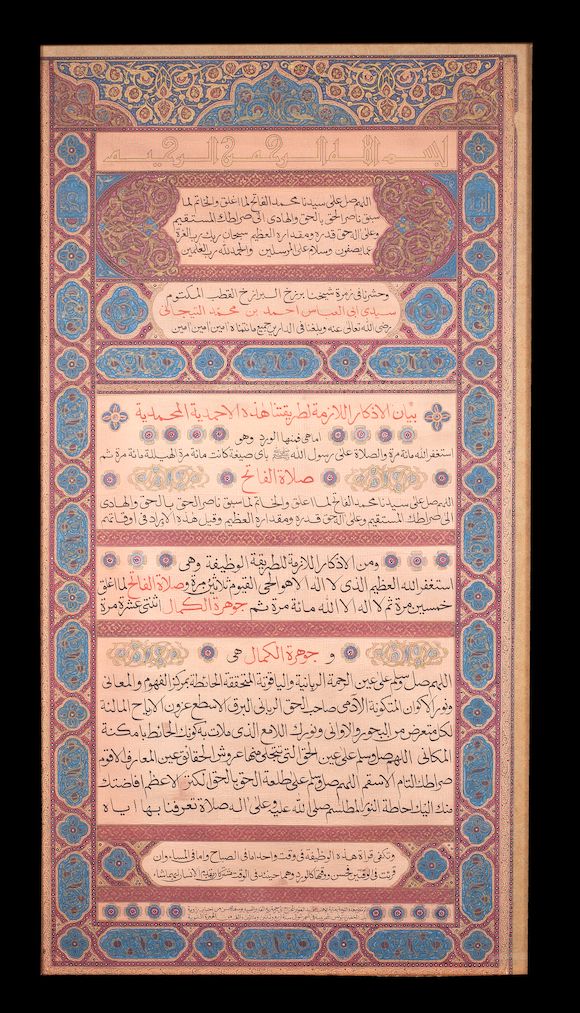 بسم الله الرحمن الرحيم
اللهم صل على سيدنا محمد الفاتح لما اغلق والخاتم لما
سبق ناصر الحق بالحق والهادى الى صراطك المستقيم
وعلى اله حق قدره ومقداره العظيم سبحان ربك رب العزة
عما يصفون وسلام على المرسلين والحمد لله رب العلمين
وحشرنا فى زمرة شيخنا برزخ البرازخ القطب المكتوم
سيدى ابى العباس احمد بن محمد التيجانى
رضى الله تعالى عنه وبلغنا فى الدارين جميع ما نتمناه امين امين امين
بيان الاذكار اللازمة لطريقتنا هذه الاحمدية المحمدية
اما هى فمنها الورد وهو
استغفر الله مائة مرة والصلاة على رسول الله ﷺ باى صيغة كانت مائة مرة الهيللة مائة مرة ثم
صلاة الفاتح
اللهم صل على سيدنا محمد الفاتح لما اغلق والخاتم لما سبق ناصر الحق بالحق والهادى
الى صراطك المستقيم وعلى اله حق قدره ومقداره العظيم وقبل هذه الاوراد فى اوقاتهم
ومن الاذكار اللازمة للطريقة الوظيفة وهى
استغفر الله العظيم الذى لا اله الا هو الحى القيوم ثلاثين مرة وصلاة الفاتح لما اغلق
خمسين مرة ثم لا اله الا الله مائة مرة ثم جوهرة الكمال اثنتى عشرة مرة
و جوهرة الكمال هى
اللهم صل وسلم على عين الرحمة الربانية والياقوتة المتحققة الحائطة بمركز الفهوم والمعانى
ونور الاكوان المتكونة الادمى صاحب الحق الربانى البرق الاسطع بمزون الارباح المالئة
لكل متعرض من البحور والاوانى ونورك اللامع الذى ملات به كونك الحائط بامكنة
المكانى اللهم صل وسلم على عين الحق التى تتجلى منها عروش الحقائق عين المعارف الاقوم
صراطك التام الاسقم اللهم صل وسلم على طلعة الحق بالحق الكنز الاعظم افاضتك
منك اليك احاطة النور المطلسم صلى الله عليه وعلى اله صلاة تعرفنا بها اياه
وتكفى قراة هذه الوظيفة فى وقت واحد اما فى الصباح واما فى المساء وان
قرئت فى الوقتين